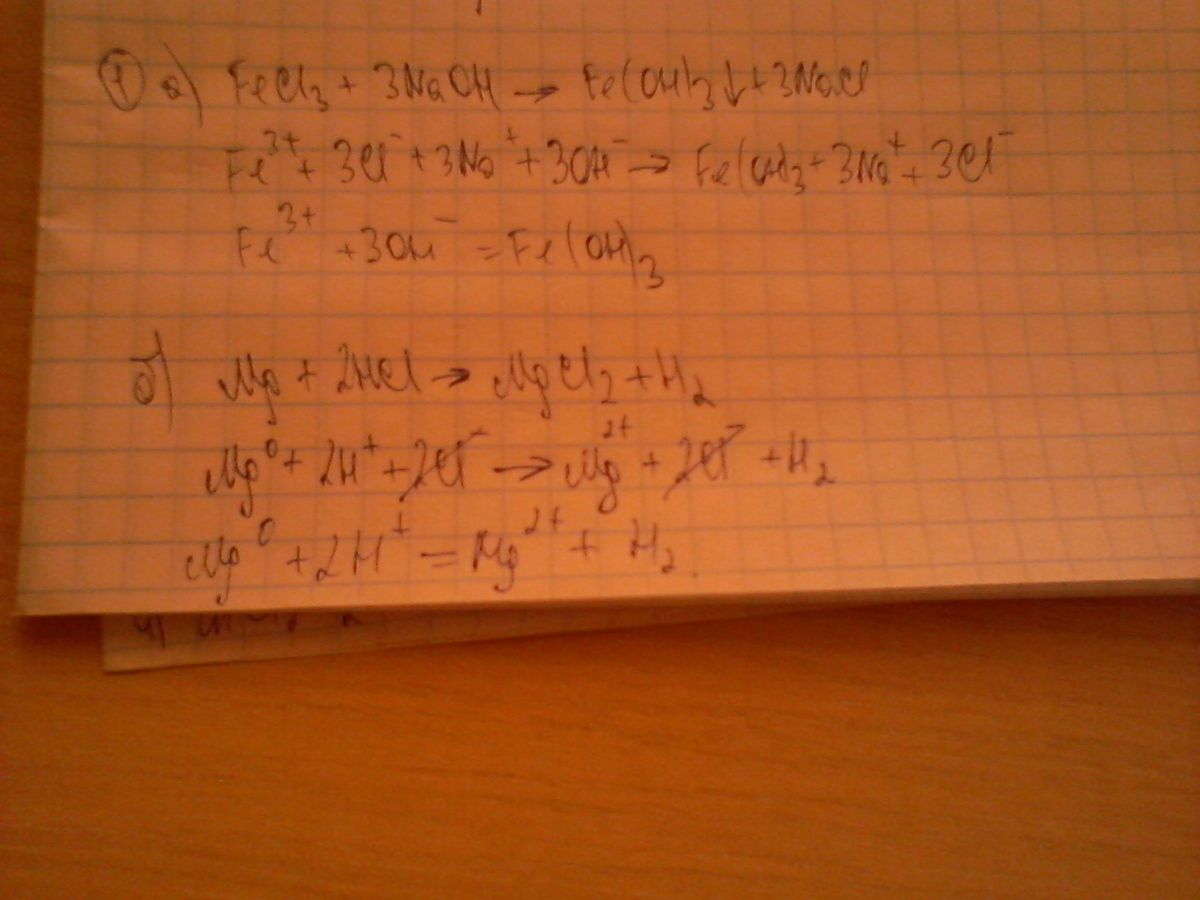 1 а) FeCl₃ + 3NaOH → Fe(OH)₃↓ + 3NaCl
Fe³⁺ + 3Cl⁻ + 3Na⁺ + 3OH⁻ → Fe(OH)₃ + 3Na⁺ + 3Cl⁻
Fe³⁺ + 3OH⁻ = Fe(OH)₃
б) Mg + 2HCl → MgCl₂ + H₂
Mg⁰ + 2H⁺ + 2Cl⁻ → Mg²⁺ + 2Cl⁻ + H₂
Mg⁰ + 2H⁺ = Mg²⁺ + H₂.